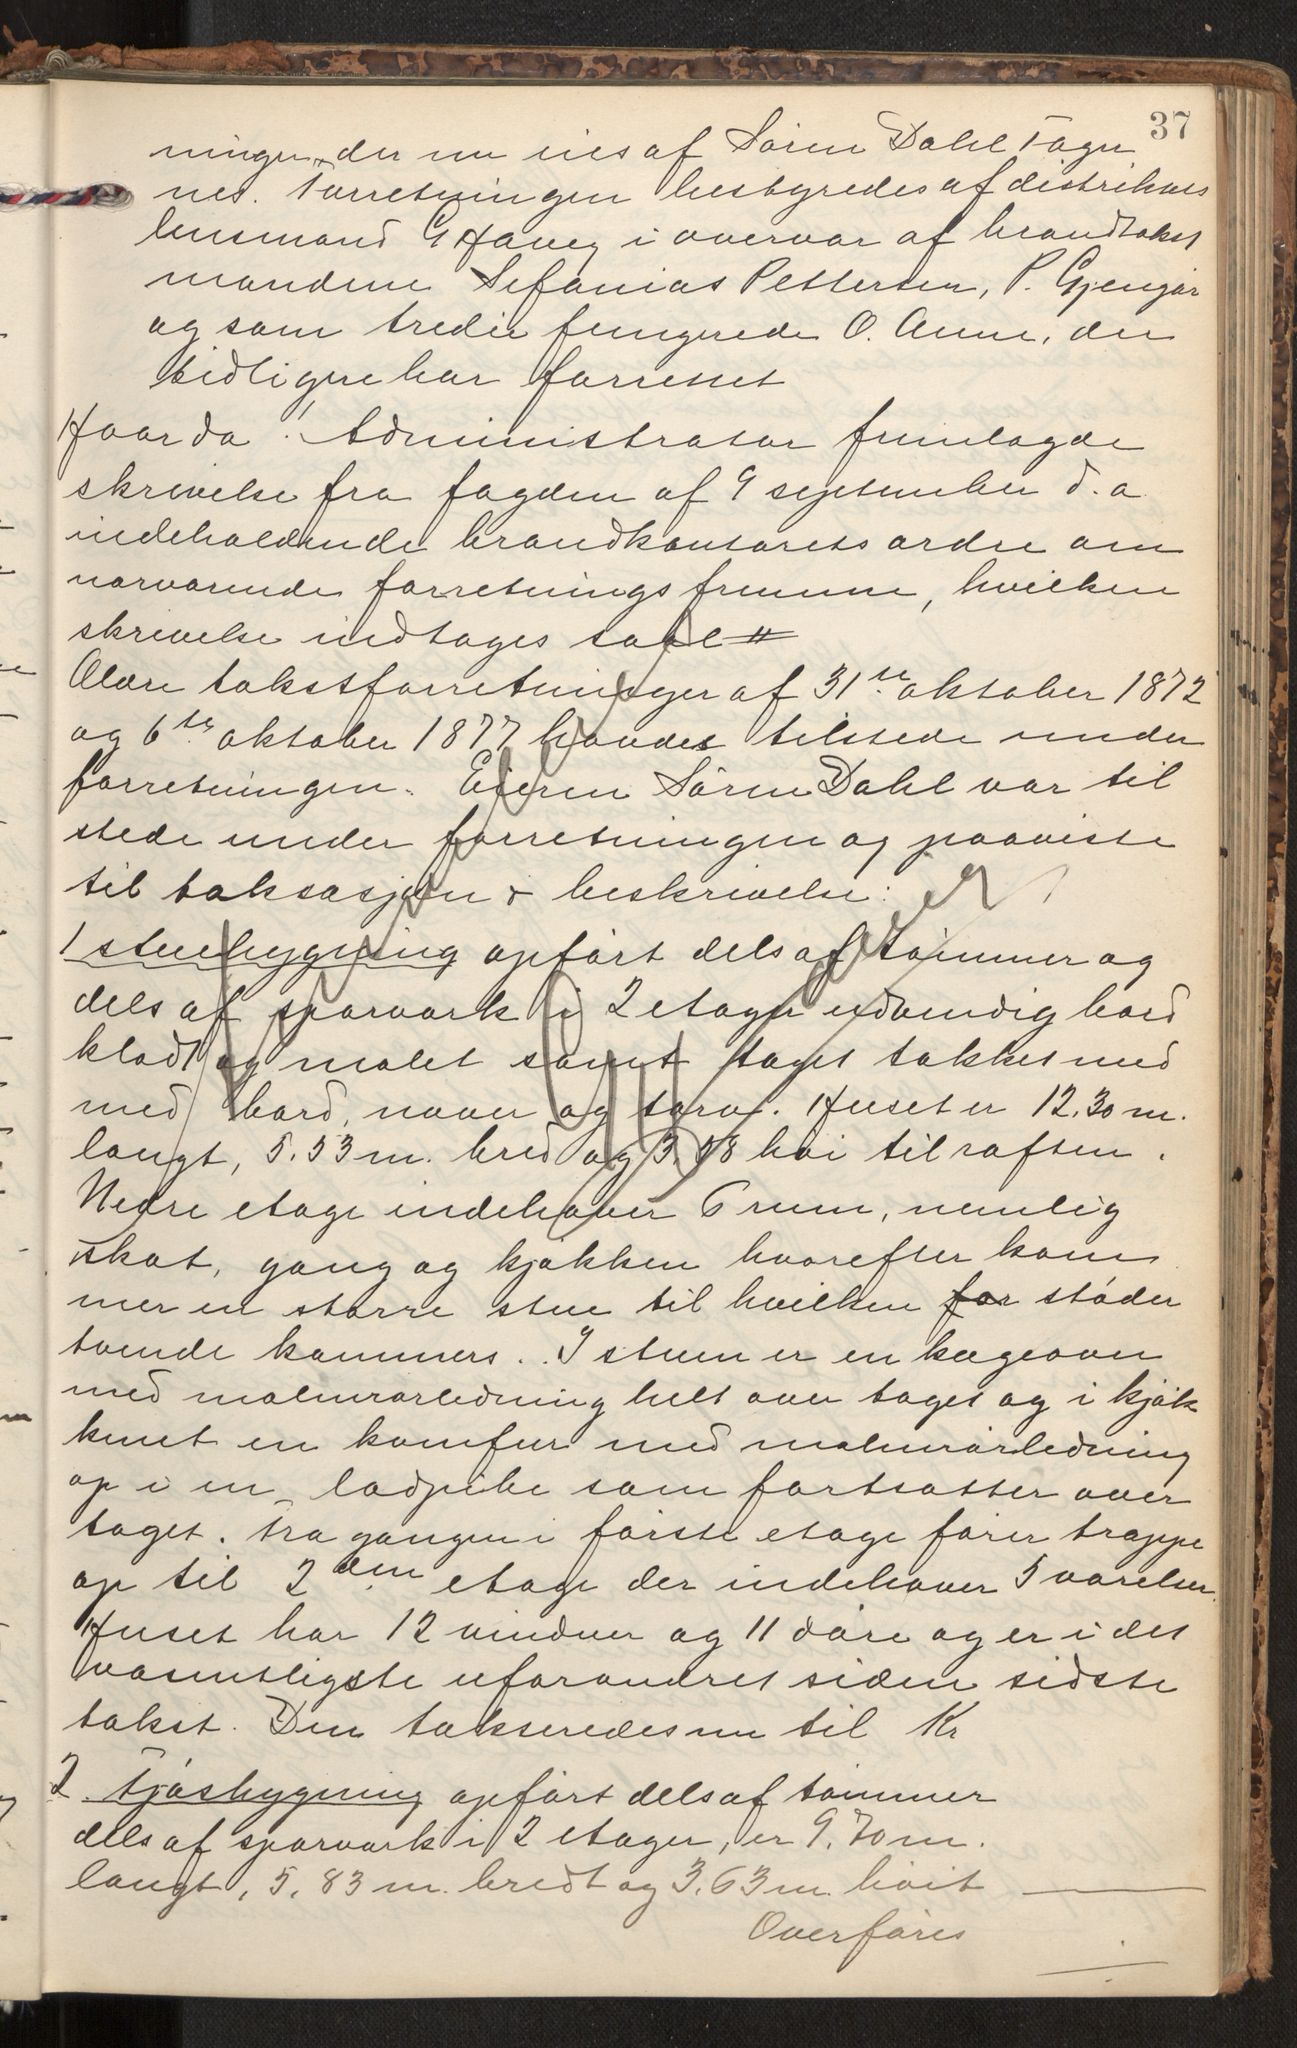 37
ninger, der nu eies af Sören Dahl Fagr
nes. Forretningen bestyredes af distriktets
lensmand G Haveg i overvær af brandtakst
mændene Sefanias Pettersen, P. Gjengår
og som tredie fungerede O. Aune, der
tidligere har forrettet
Hvorda! Administrator fremlagde
skrivelse fra fogden af 9 september d. a
indeholdende brandkontorets ordre om
nærværende forretnings fremme, hvilken
skrivelse indtages saal #
Ældre takstforretninger af 31te oktober 1872
og 6te oktober 1877 havdes tilstede under
forretningen. Eieren Sören Dahl var til
stede under forretningen og paaviste
til taksasjon & beskrivelse:
1 stuebygning opfört dels af tömmer og
dels af sparværk i 2 etager udvendig bord
klædt og malet samt taget tækket med
med bord, næver og törv. Huset er 12.30 m.
langt, 5.53 m. bred og 3.58 höi til raften.
Nedre etage indehaver 6 rum, nemlig
skot, gang og kjökken hvorefter kom
mer en större stue til hvilken for stöder
tvende kammers. I stuen er en kogeovn
med malmrörledning helt over taget og i kjök
kenet en komfur med malmrörledning
op i en lodpibe som fortsætter over
taget. Fra gangen i förste etage förer trappe
op til 2den etage der indehaver 5 værelser.
Huset har 12 vinduer og 11 döre og er i det
væsentligste uforandret siden sidste
takst. Den takseredes nu til Kr
2 Fjösbygning opfört dels af tömmer
dels af sparværk i 2 etager, er 9.70 m.
langt, 5.83 m. bredt og 3.63 m. höit
Overföres